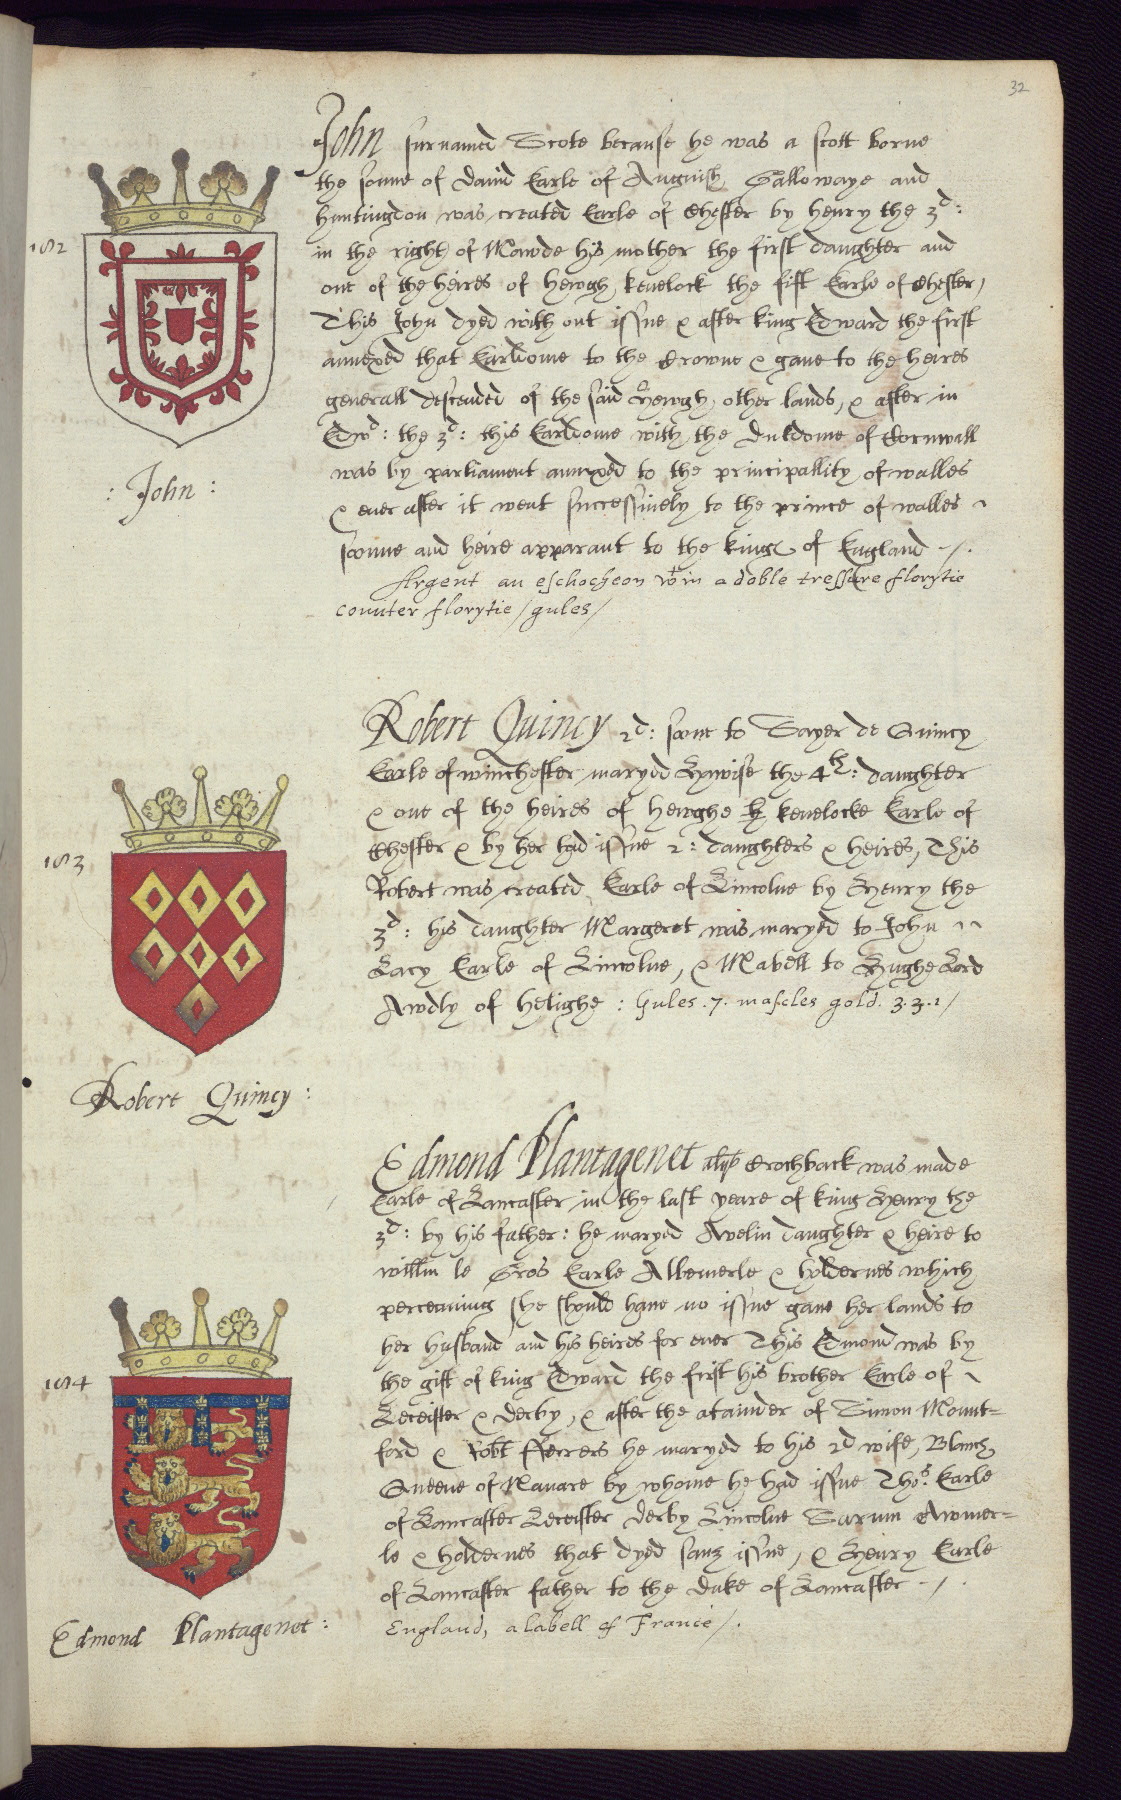 32
John surnamed Scote because he was a scott borne
the sonne of dauid Earle of Anguish Gallowaye and
huntingdon was created Earle of Chester by henry the 3d:
182
in the right of Mawde his mother the first daughter and
one of the heires of hewgh kevelock the fift Earle of Chester,
This John dyed with out issue & after king Edward the first
annexed that Earldome to the Crowne & gaue to the heires
generall descended of the said Hewgh, other lands, & after in
Edwd: the 3d: this Earldome with the dukdome of Cornwall
was by parliament annexed to the principallity of walles
& ever after it went successiuely to the prince of walles ~
sonne and heire apparant to the kings of England -/.
: John :
Argent an eschocheon wtin a doble tressure florytie
counter florytie / gules /
Robert Quincy 2d: sonne to Sayer de Quincy
Earle of winchester maryed Hawise the 4th: daughter
& one of the heires of hewghe k kevelocke Earle of
Chester & by her had issue 2: daughters & heires, This
183
Robert was created Earle of Lincolne by Henry the
3d: his daughter Margeret was maryed to John ~
Lacy Earle of Lincolne, & Mabell to Hughe Lord
Awdly of helighe : Gules .7. mascles gold. 3.3.1 /
Robert Quincy :
Edmond Plantagenet alias Crochback was made
Earle of Lancaster in the last yeare of king Henry the
3d: by his father: he maryed Avelin daughter & heire to
willm le Gros Earle Albemerle & holdernes which
perceauing she should haue no issue gaue her lands to
her husband and his heires for ever This Edmond was by
the gift of king Edward the first his brother Earle of ~
184
Leceister & derby, & after the atainder of Simon Mount=
ford & Robt Ferrers he maryed to his 2d wife, Blanch
Queene of Nauare by whome he had issue Thos. Earle
of Lancaster Leceister derby Lincolne Sarum Awmer=
le & holdernes that dyed sanz issue, & Henry Earle
of Lancaster father to the duke of Lancaster -/.
England, a labell of France /.
Edmond Plantagenet :